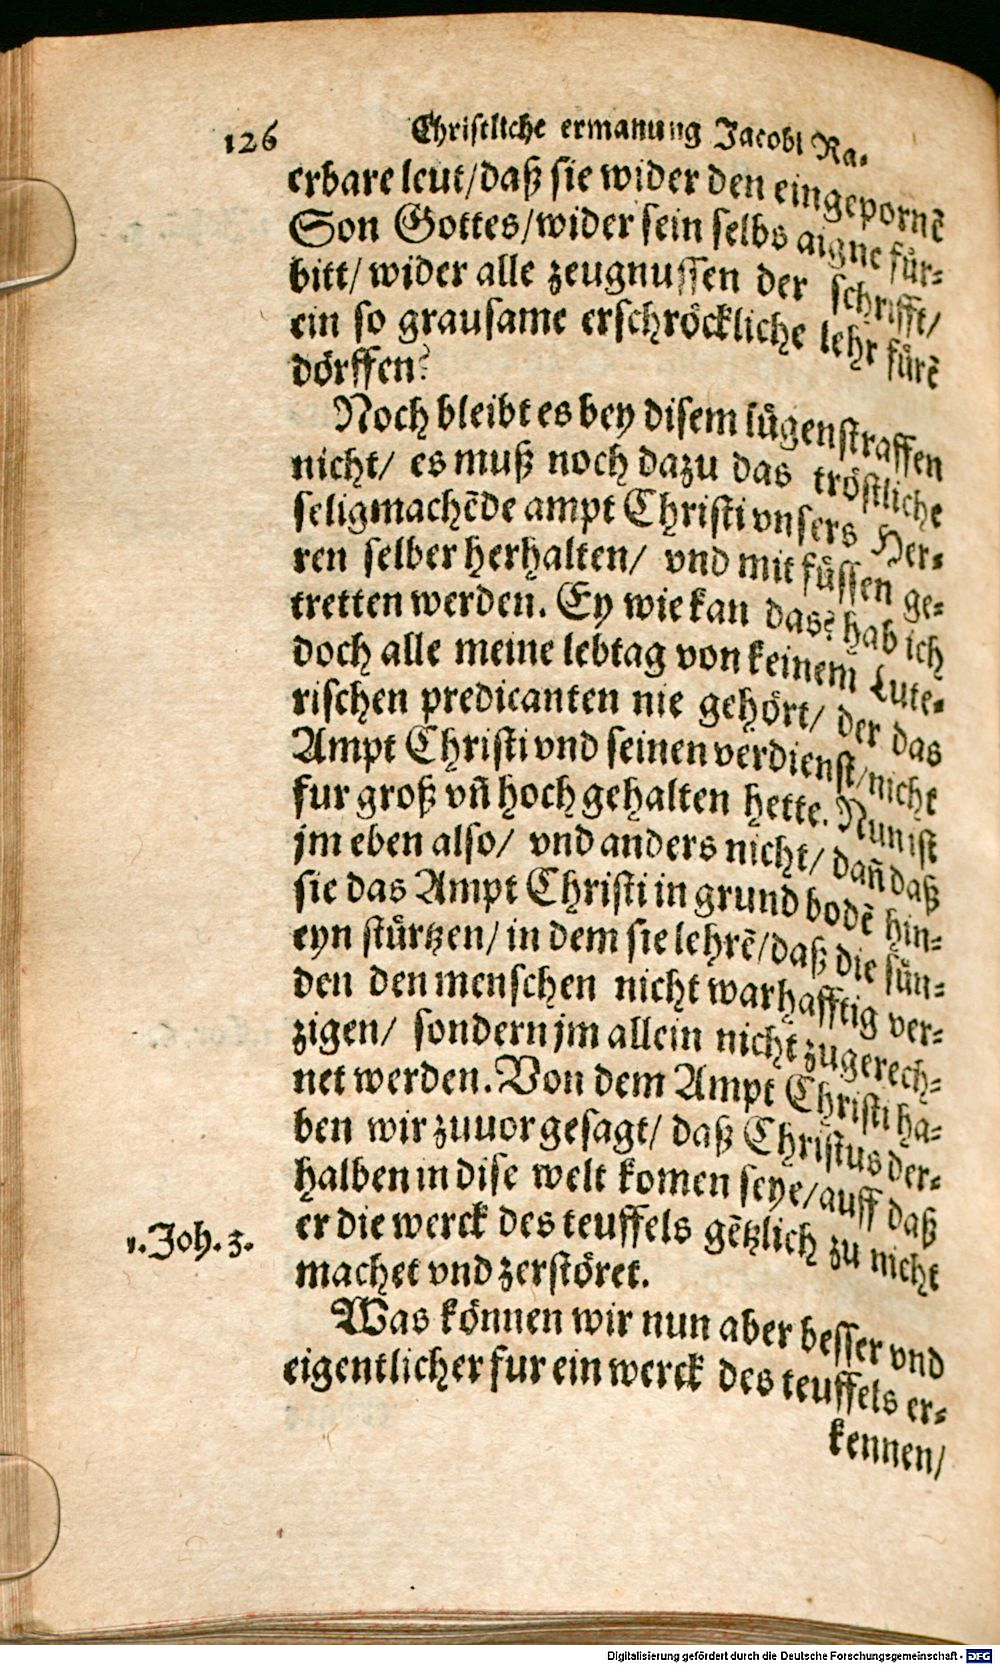 126 Christliche ermanung Jacobi Ra-
erbare leut/daß sie wider den eingepornẽ
Son Gottes/wider sein selbs aigne fuͤr-
bitt/ wider alle zeugnussen der schrifft/
ein so grausame erschroͤckliche lehr fuͤrẽ
doͤrffen?
Noch bleibt es bey disem luͤgenstraffen
nicht/ es muß noch dazu das troͤstliche
seligmachẽde ampt Christi vnsers Her-
ren selber herhalten/ vnd mit fuͤssen ge-
tretten werden. Ey wie kan das? hab ich
doch alle meine lebtag von keinem Lute-
rischen predicanten nie gehoͤrt/ der das
Ampt Christi vnd seinen verdienst/nicht
fur groß vñ hoch gehalten hette. Nun ist
jm eben also/ vnd anders nicht/ dañ daß
sie das Ampt Christi in grund bodẽ hin-
eyn stuͤrtzen/ in dem sie lehrẽ/daß die suͤn-
den den menschen nicht warhafftig ver-
zigen/ sondern jm allein nicht zugerech-
net werden. Von dem Ampt Christi ha-
ben wir zuuor gesagt/ daß Christus der-
halben in dise welt komen seye/auff daß
1. Joh. 3. er die werck des teuffels gẽtzlich zu nicht
machet vnd zerstoͤret.
Was koͤnnen wir nun aber besser vnd
eigentlicher fur ein werck des teuffels er-
kennen/
Digitalisierung gefördert durch die Deutsche Forschungsgemeinschaft - DFG